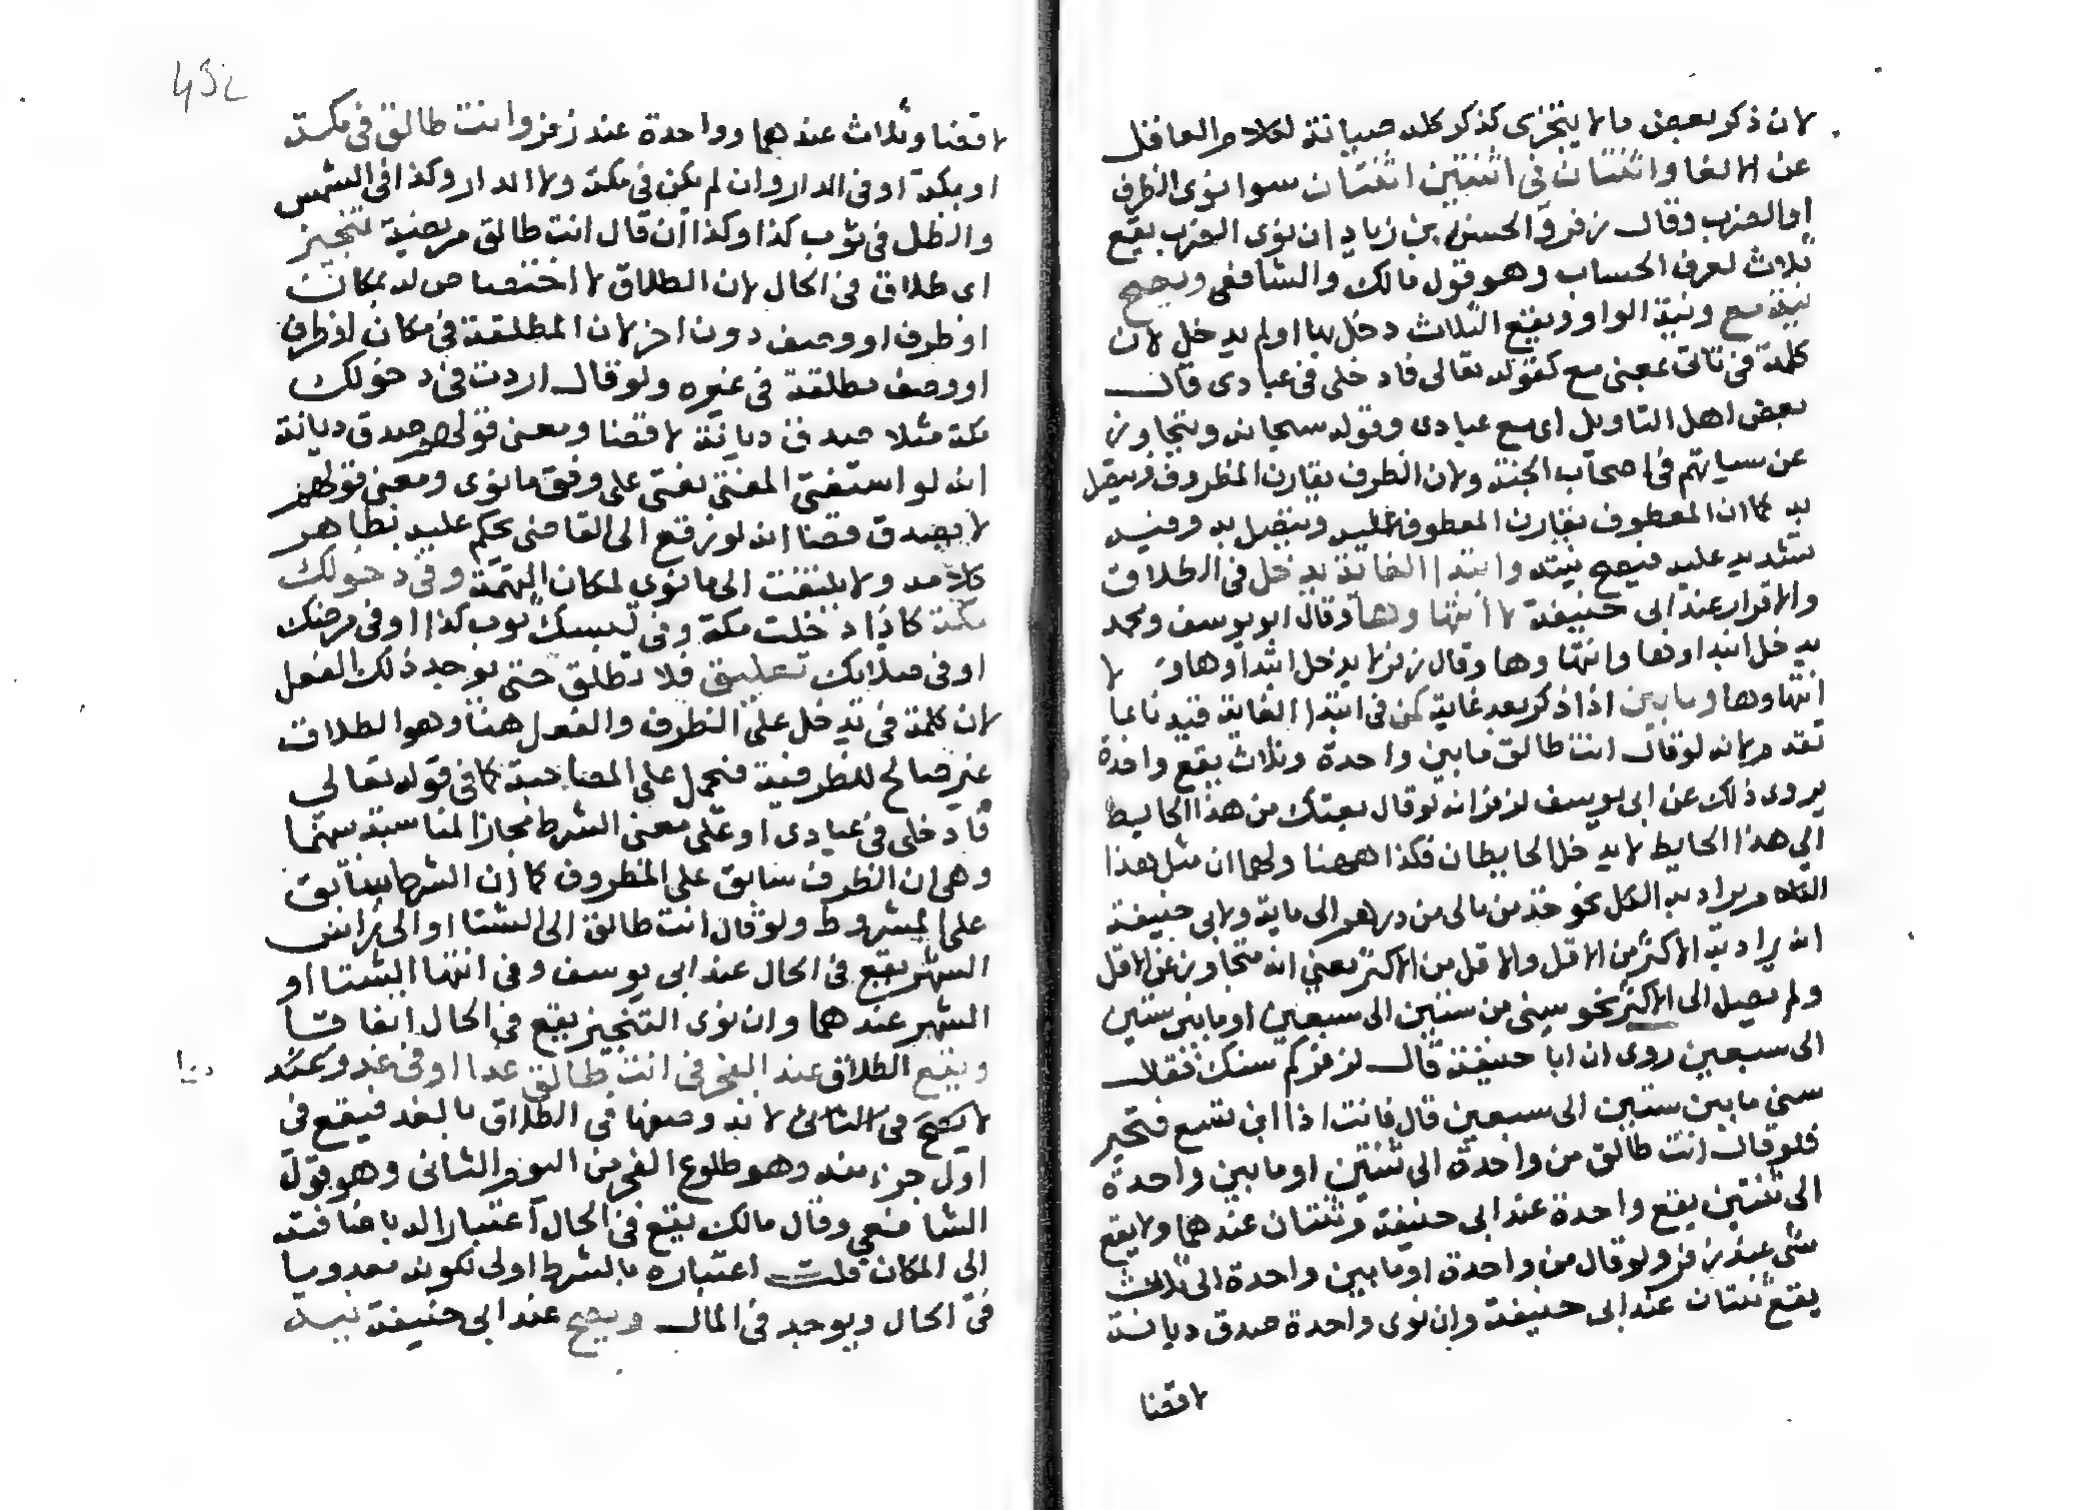 لان ذكر بعض ما لا يتجزى كذكر كله صيانة لكلام العاقل
عن الالغا واثنتان في اثنتين اثنتان سوا نوى الظرف
او الضرب وقال زفر والحسن بن زياد ان نوى الضرب يقع
ثلاث لعرف الحساب وهو قول مالك والشافعي ويصح
نية مع ونية الواو ويقع الثلاث دخل بها او لم يدخل لان
كلمة في تاتي بمعنى مع كقوله تعالى فادخلي في عبادي قال
بعض اهل التاويل اي مع عبادي وقوله سبحانه ويتجاوز
عن سياتهم في اصحاب الجنة ولان الظرف يقارن المظروف ويتصل
به كما ان المعطوف يقارن المعطوف عليه ويتصل به وفيه
تشديد عليه فيصح نيته وابتدا الغاية يدخل في الطلاق
والاقرار عند ابي حنيفة لا انتهاوها وقال ابو يوسف ومحمد
يدخل ابتداوها وانتهاوها وقال زفر لا يدخل ابتداوها ولا
انتهاوها وما بين اذا ذكر بعد غاية كمن في ابتدا الغاية قيد بما
تقدم لانه لو قال انت طالق ما بين واحدة وثلاث يقع واحدة
يروى ذلك عن ابي يوسف لزفر انه لو قال بعتك من هذا الحايط
الى هذا الحايط لا يدخل الحايطان فكذا ههنا ولهما ان مثل هذا
الكلام يراد به الكل نحو خذ من مالي من درهم الى ماية ولابي حنيفة
انه يراد به الاكثر من الاقل والاقل من الاكثر يعني انه متجاوز عن الاقل
ولم يصل الى الاكثر نحو سني من ستين الى سبعين او ما بين ستين
الى سبعين روى ان ابا حنيفة قال لزفر كم سنك فقال
سني ما بين ستين الى سبعين قال فانت اذا ابن تسع فتحير
فلو قال انت طالق من واحدة الى ثنتين او ما بين واحدة
الى ثنتين يقع واحدة عند ابي حنيفة وثنتان عندهما ولا يقع
شي عند زفر ولو قال من واحدة او ما بين واحدة الى ثلاث
يقع ثنتان عند ابي حنيفة وان نوى واحدة صدق ديانة
لا قضا
432
لا قضا وثلاث عندهما وواحدة عند زفر وانت طالق في مكة
او بمكة او في الدار وان لم يكن في مكة ولا الدار وكذا في الشمس
والظل في ثوب كذا وكذا ان قال انت طالق مريضة تنجيز
اي طلاق في الحال لان الطلاق لا اختصاص له بمكان
او ظرف او وصف دون اخر لان المطلقة في مكان او ظرف
او وصف مطلقة في غيره ولو قال اردت في دخولك
مكة مثلا صدق ديانة لا قضا ومعنى قولهم صدق ديانة
انه لو استفتى المفتي يفتى على وفق ما نوى ومعنى قولهم
لا يصدق قضا انه لو رفع الى القاضي يحكم عليه بظاهر
كلامه ولا يلتفت الى ما نوى لمكان التهمة وفي دخولك
مكة كاذا دخلت مكة وفي لبسك ثوب كذا او في مرضك
او في صلاتك تعليق فلا تطلق حتى يوجد ذلك الفعل
لان كلمة في تدخل على الظرف والفعل هنا وهو الطلاق
غير صالح للظرفية فيحمل على المصاحبة كما في قوله تعالى
فادخلي في عبادي او على معنى الشرط مجازا لمناسبة بينهما
وهي ان الظرف سابق على المظروف كما ان الشرط سابق
على المشروط ولو قال انت طالق الى الشتا او الى راس
الشهر يقع في الحال عند ابي يوسف وفي انتها الشتا او
الشهر عندهما وان نوى التنجيز يقع في الحال اتفاقا
ويقع الطلاق عند الفجر في انت طالق غدا او في غد وعند
لانه وصفها في الطلاق بالغد فيقع في
اول جزء منه وهو طلوع الفجر من اليوم الثاني وهو قول
الشافعي وقال مالك يقع في الحال اعتبارا له باضافته
الى المكان قلت اعتباره بالشرط اولى لكونه معدوما
في الحال ويوجد في المال ويصح عند ابي حنيفة نية